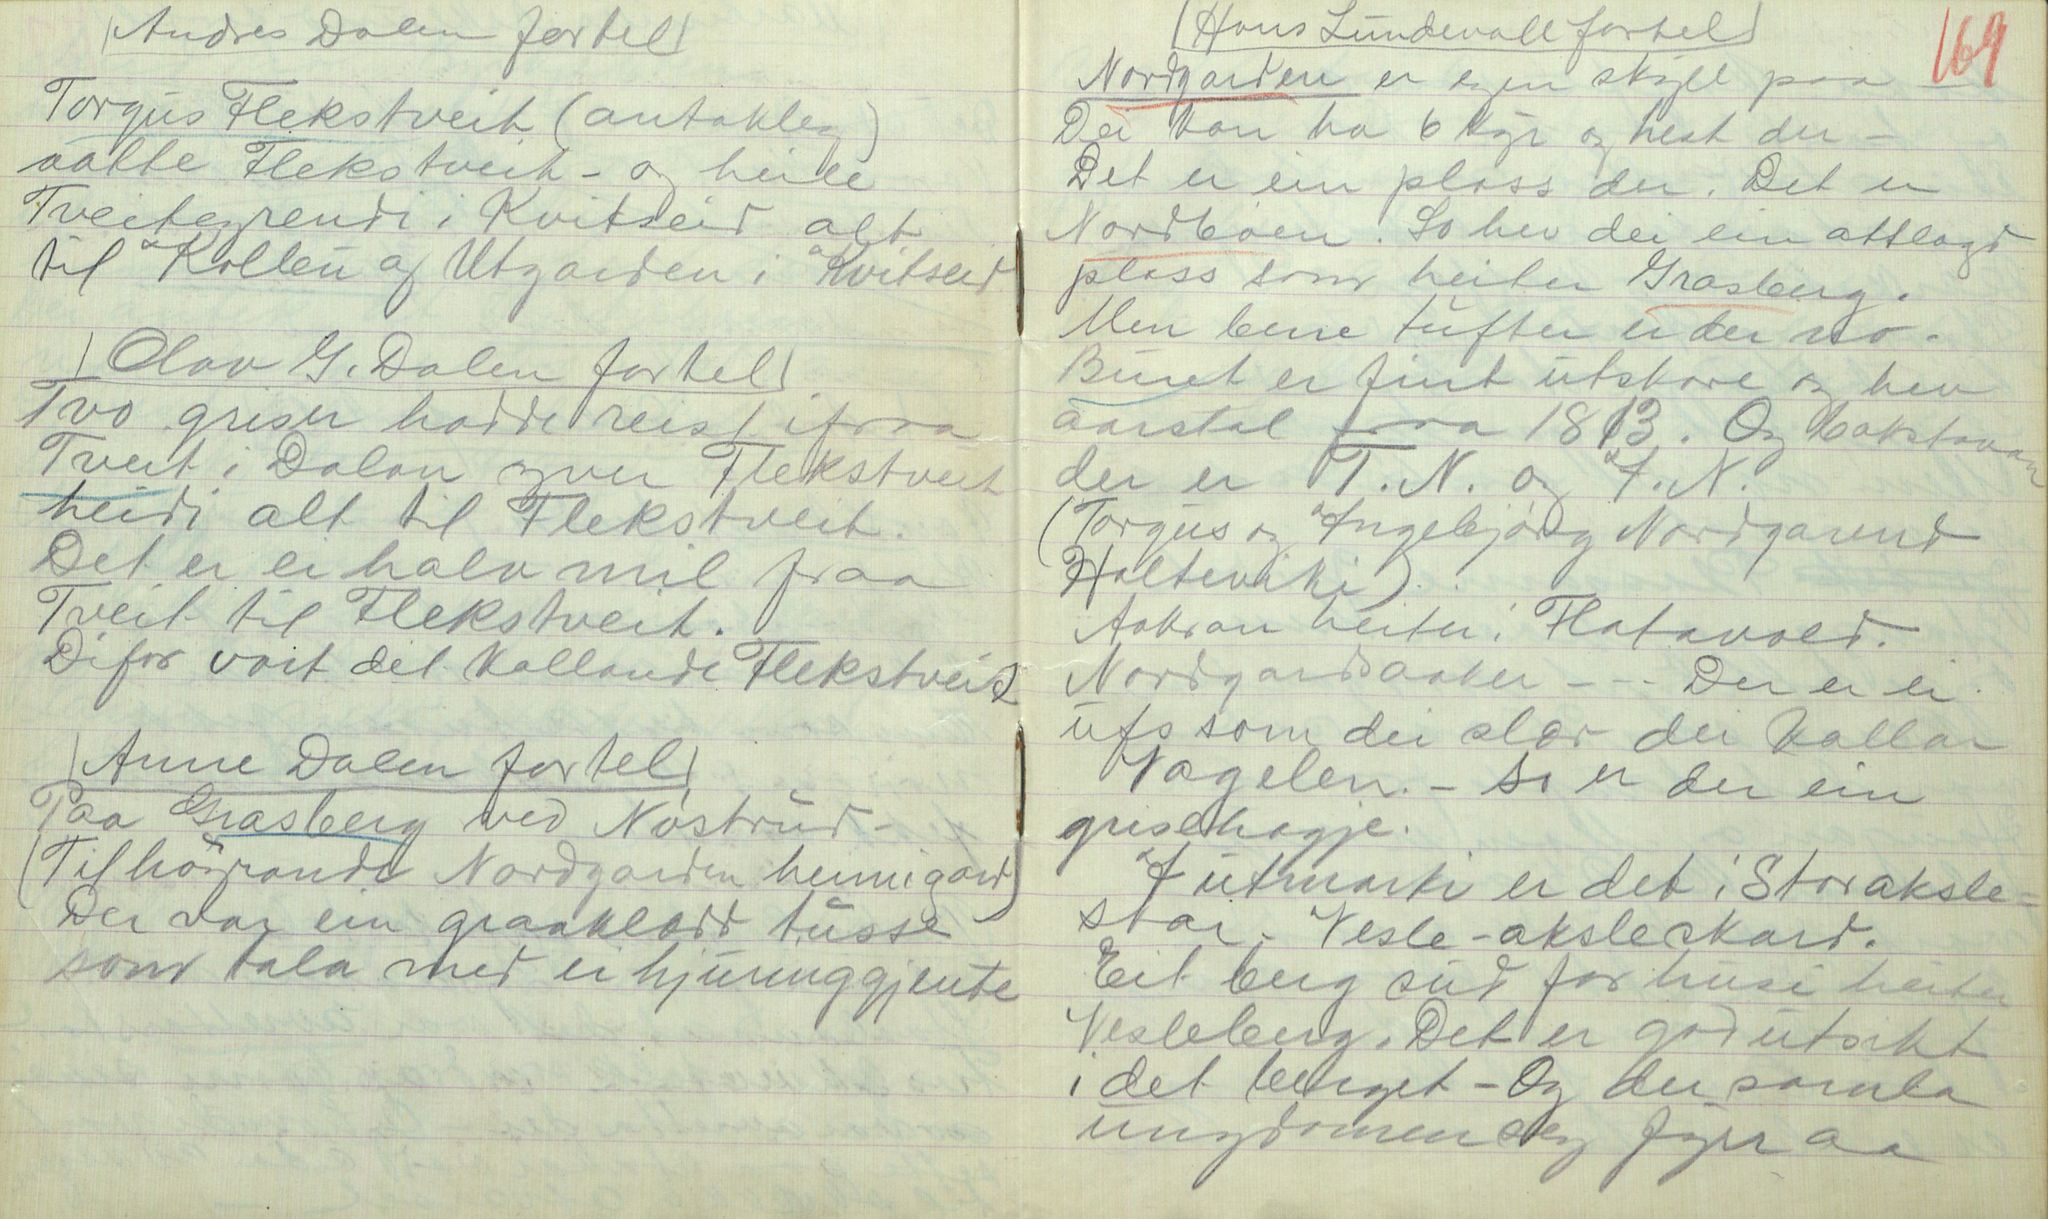 Andres Dalen fortel
Torgus Flekstveit (antakleg)
aatte Flekstveit - og heile
Tveitegrendi i Kvitseid alt
til Kollen af Utgarden i Kvitseid
Olav G. Dalen fortel
Tvo griser hadde reist ifraa
Tveit i Dalan yver Flekstveit
heidi alt til Flekstveit.
Det er ei halv mil fraa
Tveit til Flekstveit.
Difor vart det kallande Flekstveit
Anne Dalen fortel
Paa Grasberg ved Nöstrud -
(Tilhöyrande Nordgarden heimigard)
Der var ein graaklædd tusse
som tala med ei hjuringgjente
169
Hans Lundevall fortel
Nordgarden er eigen skyll paa -
Dei kan ha 6 kyr og hest der -
Det er ein plass der. Det er
Nordböen. So hev dei ein attlagd
plass som heiter Grasberg.
Men berre tufter er der no.
Buret er fint utskore og hev
aarstal fraa 1813. Og bokstavan
der er T. N. og I. N.
(Torgus og Ingebjörg Nordgarend
Haltevihi).
Aakran heiter: Flatavold.
Nordgardsaaker - - - Der er ei
ufs som dei slær dei kallar
Nagelen. - So er der ein
grisehagje.
I utmarki er det i Storaksle-
star. Vesle-akslekard.
Eit berg sud for husi heiter
Vesleberg. Det er god utsikt
i det berget - Og der samla
ungdomen seg fyrr aa